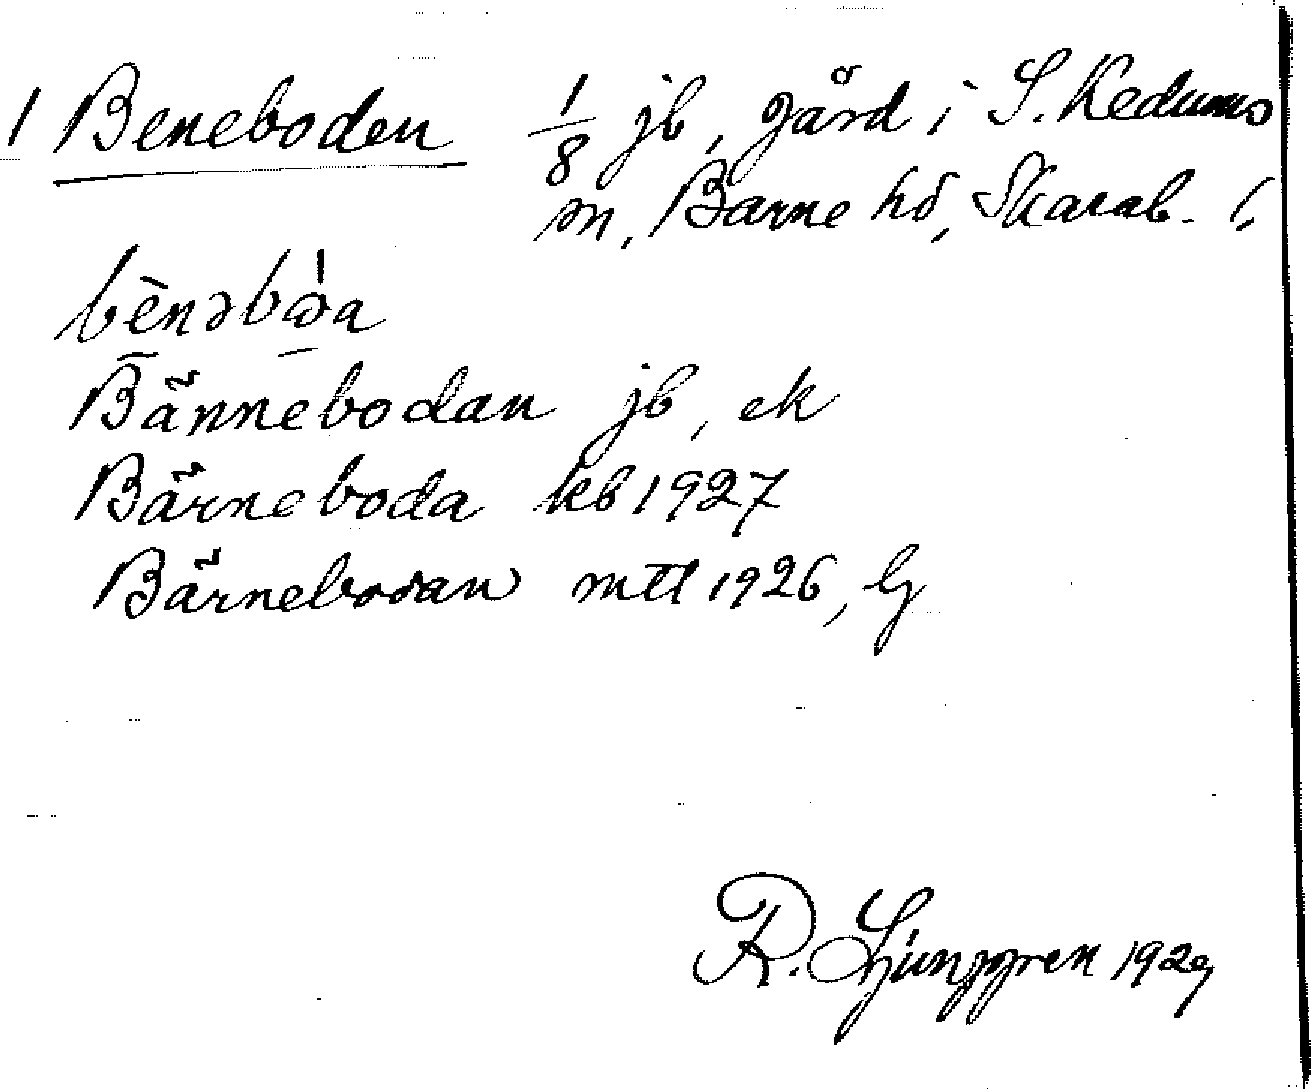 1 Beneboden 1/8 jb, gård i S. Kedums
m, Barne hd, Skarab. l,
bènəbωa
Bännebodan jb, ek
Bärneboda kb 1927
Bärnebodan mtl 1926, Lj
R. Ljunggren 1929